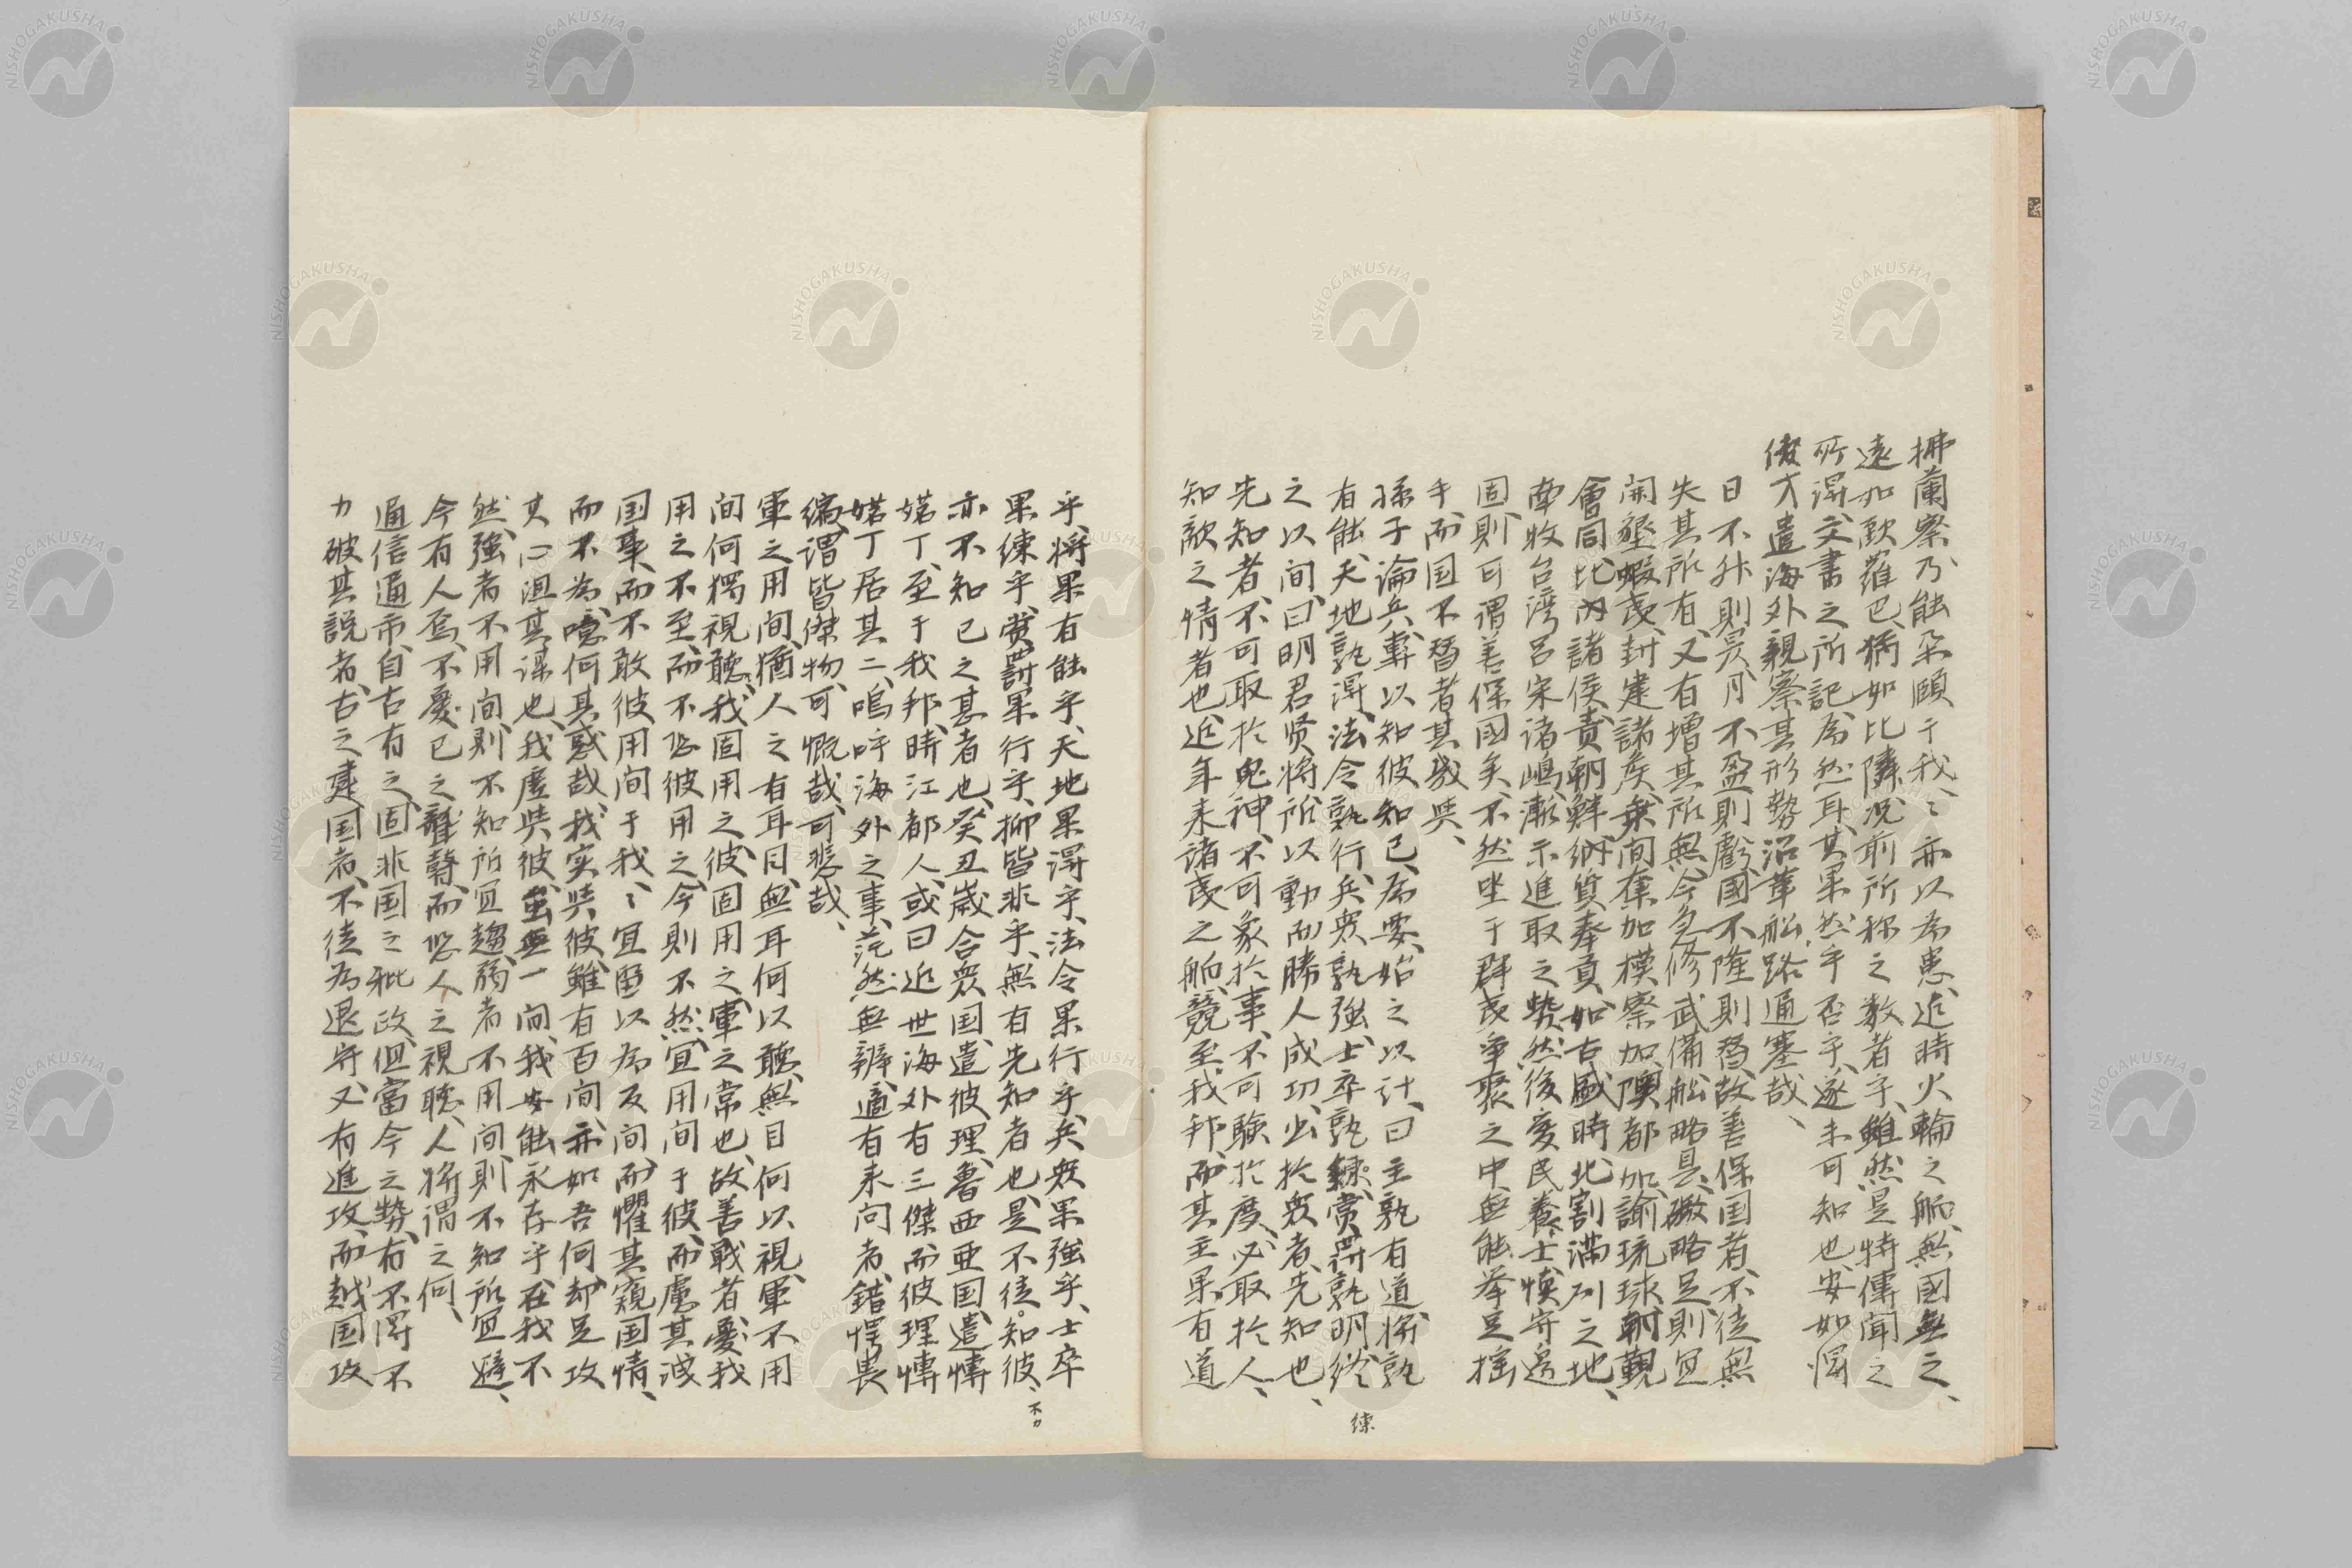 拂蘭察乃能朶頤于我〻亦以為患、近時火輪之舶、無國無之、
遠如歐羅巴、猶如比隣、況前所称之数者乎、雖然是特傳聞之
所得、文書之所記為然耳、其果然乎否乎、遂未可知也、安如得
俊才遣海外、親察其形勢沿革舩路通塞哉、
日不升則昃、月不盈則虧、國不隆則替、故善保国者、不徒無
失其所有、又有增其所無、今急修武備、舩略具、礮略足、則宜
開墾蝦夷、封建諸矦、乗间奪加摸察加、隩都加、諭琉球、朝覲
會同、比内諸侯、責朝鮮、納質奉貢、如古盛時、北割滿州之地、
南收台湾呂宋諸嶋、漸示進取之勢、然後愛民養士、慎守邊
固、則可謂善保國矣、不然坐于群夷爭聚之中、無能挙足揺
手、而国不替者其幾与、
孫子論兵、專以知彼知己為要、始之以計、曰主孰有道、将孰
有能、天地孰得、法令孰行、兵衆孰強、士卒孰練、賞罰孰明、終
之以间、曰明君贤将、所以動而勝人、成功出於衆者、先知也、
先知者、不可取於鬼神、不可象於事、不可驗於度、必取於人、
知敵之情者也、近年来諸夷之舶、競至我邦、而其主果有道
練
乎、将果有能乎、天地果得乎、法令果行乎、兵衆果強乎、士卒
果練乎、賞罰果行乎、抑皆非乎、無有先知者也、是不徒知彼、
不カ
亦不知已之甚者也、癸丑歲、合衆国遣彼理、魯西亜国遣愽
婼丁、至于我邦、時江都人或曰、近世海外有三傑、而彼理愽
婼丁居其二、嗚呼海外之事、茫然無辨、適有来问者、錯愕畏
縮、謂皆傑物、可慨哉、可悲哉、
軍之用間、猶人之有耳目、無耳何以聴、無目何以視、軍不用
间、何獨視聽、我固用之、彼固用之、軍之常也、故善戦者、憂我
用之不至、而不恐彼用之、今則不然、宜用间于彼、而慮其減
国事、而不敢、彼用间于我〻宜因以為反间、而懼其窺国情、
而不為、噫何其惑哉、我实与彼、雖有百间、亦如吾何、却足攻
其心沮其謀也、我虚与彼、虽無一间、我安能永存乎、在我不
然、強者不用间、則不知所宜趨、弱者不用间、則不知所宜避、
今有人焉、不憂已之聾瞽、而恐人之視聴、人将謂之何、
通信通市、自古有之、固非国之秕政、但當今之勢、有不得不
力破其説者、古之建国者、不徒為退守、又有進攻、而越国攻